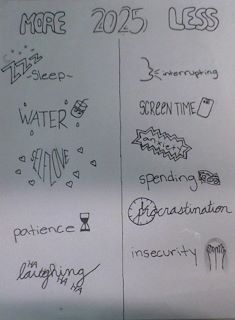 MORE 2025 LESS
ZZZ
~Sleep~
WATER
SELF LOVE
patience
HA
laughing
HA
HA
interrupting
SCREEN TIME
anxiety
spending
procrastination
insecurity